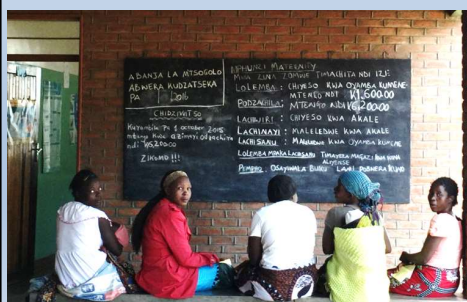 ABANJA LA MTSOGOLO
ABWERA KUDZATSEKA
PA 2016
CHIDZIWITSO
Kuyambila pa 1 october 2015
mtengo kwa azimayi odzachira
ndi K5,200.00
ZIKOMO!!!
MPHUNGI MATERNITY
MWA ZINA ZOMWE TIMACHITA NDI IZI:
LOLEMBA: CHIYESO KWA OYAMBA KUMENE-
MTENGO NDI K1,600.00
PODZACHILA: MTENGO NDI K5,200.00
LACHIWIRI: CHIYESO KWA AKALE
LACHINAYI: MALELEDWE KWA AKALE
LACHISANU: MALELEDWE KWA OYAMBA KUMENE
LOLEMBA MPAKA LACHISANU TIMAYEZA MAGAZI KWA WINA ALIYENSE
OSAYIWALA BUKU LANU POBWERA KUNO